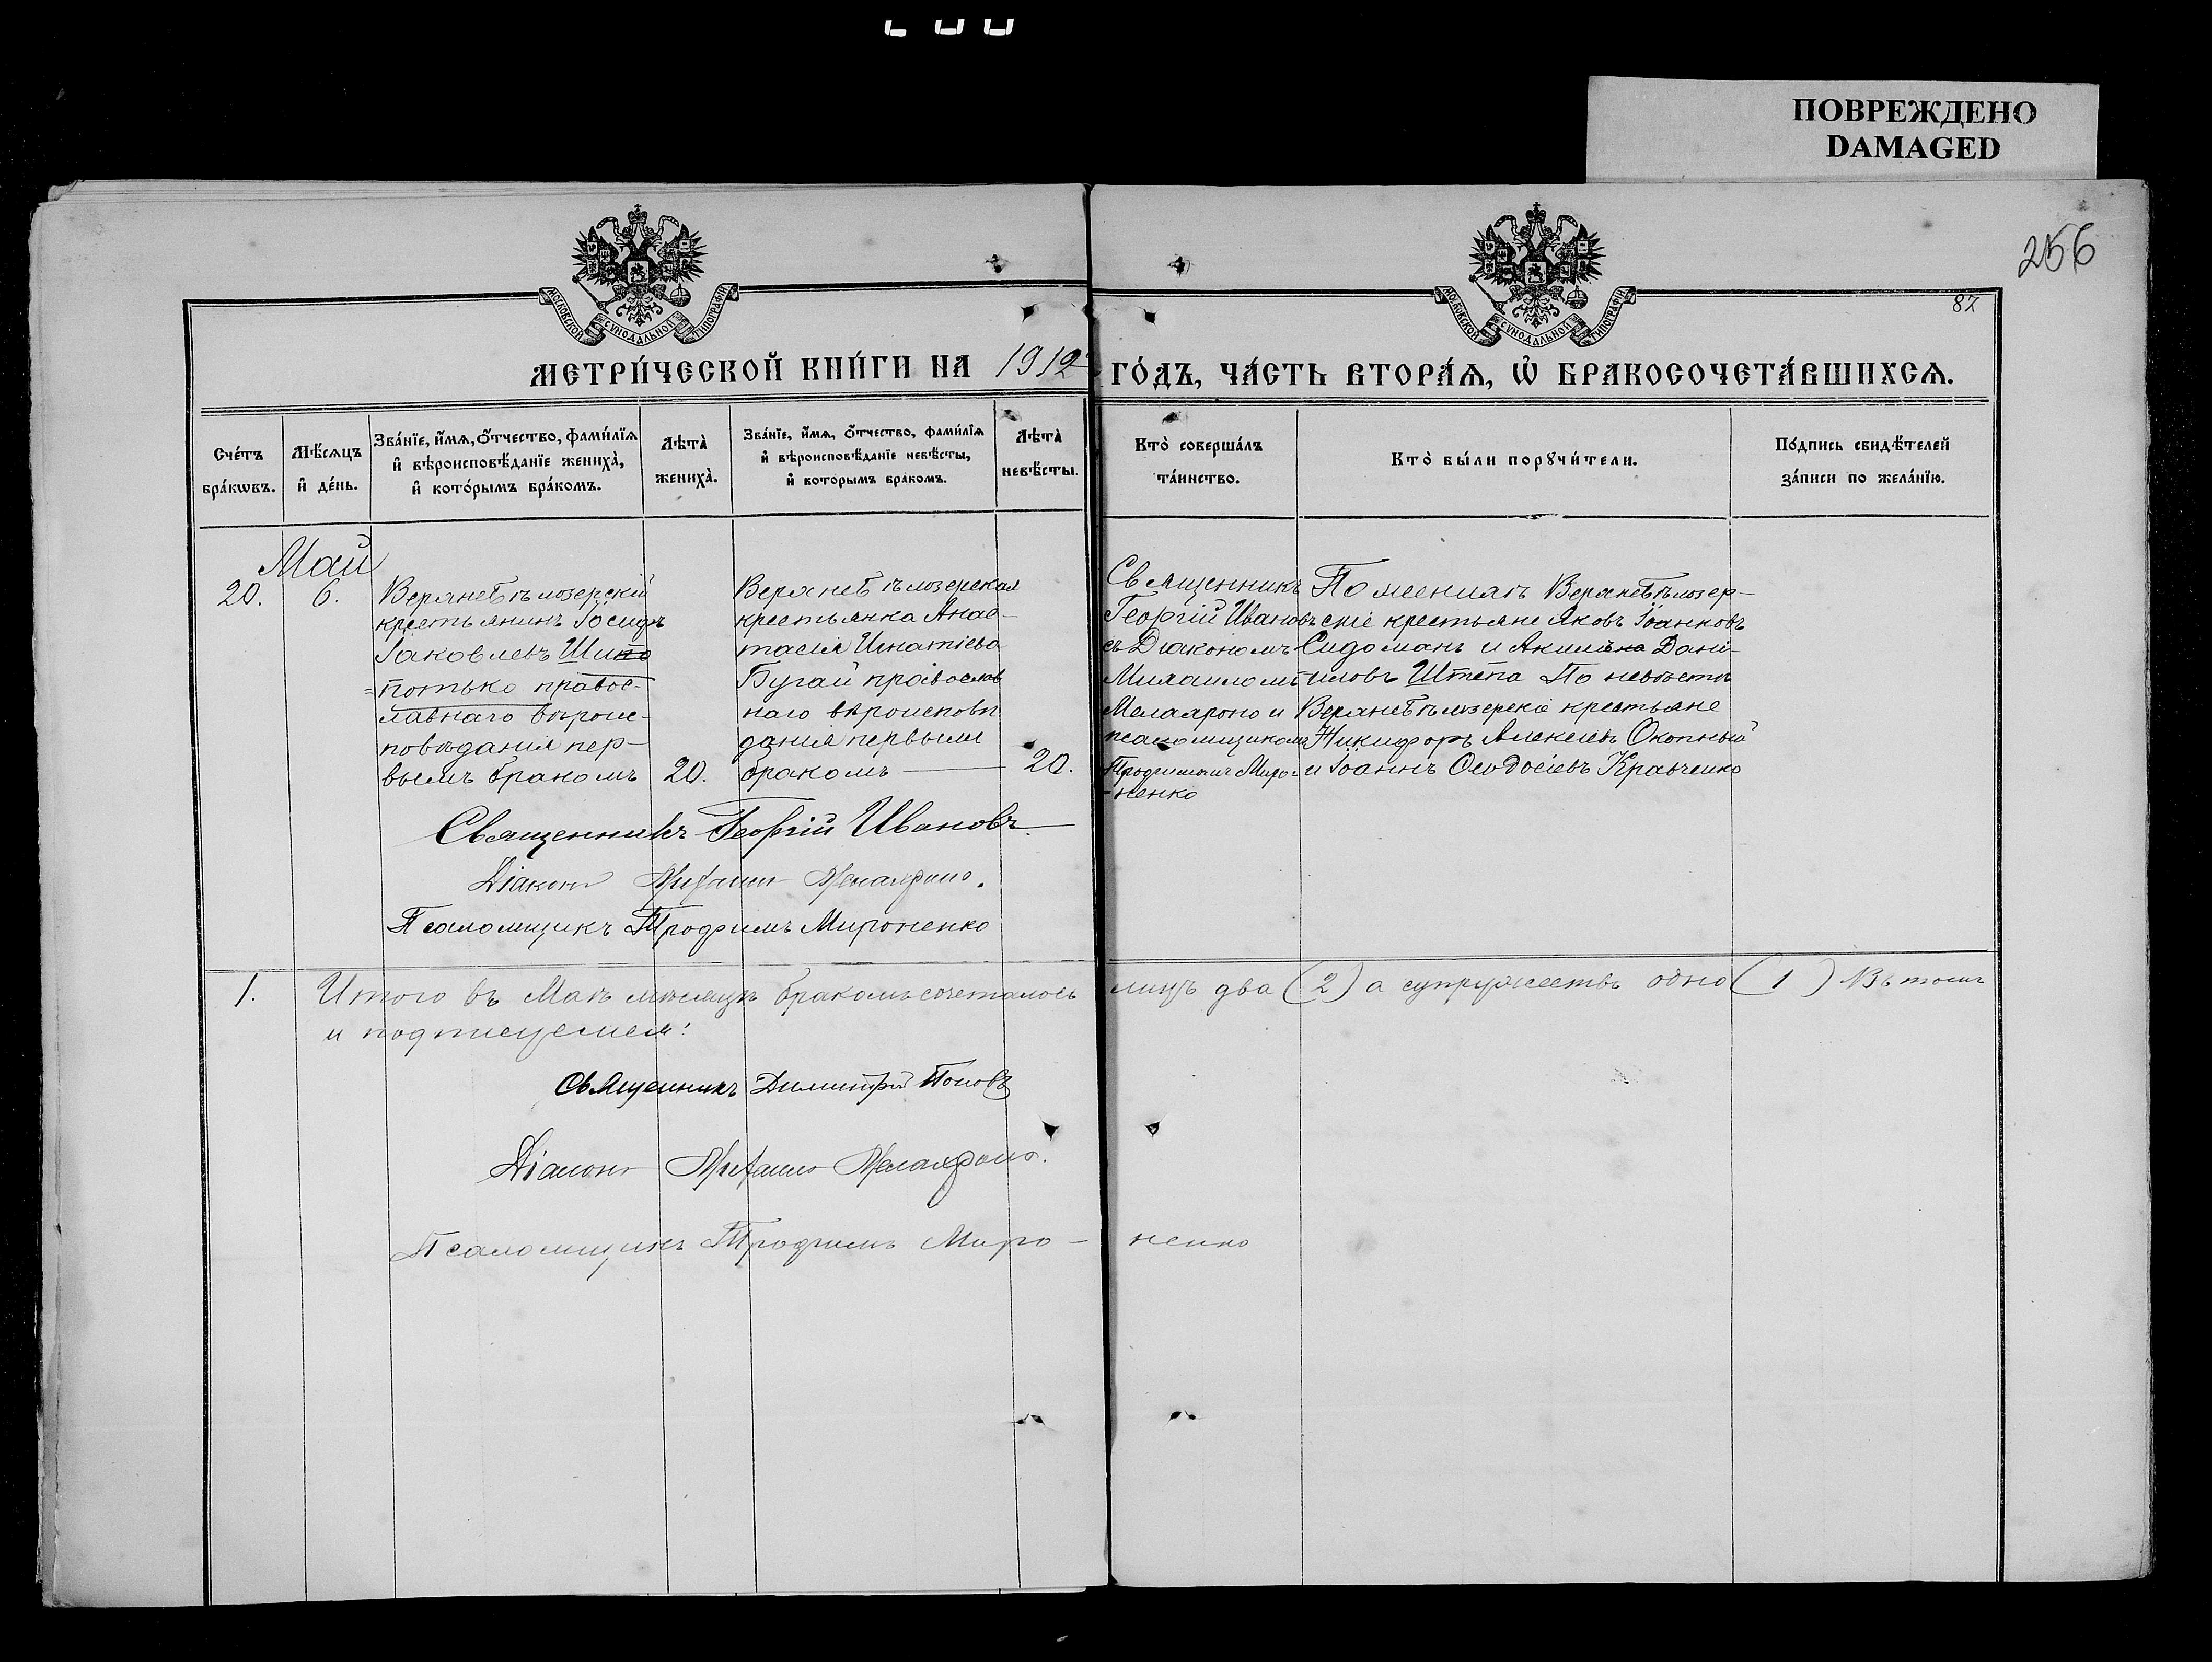 ПОВРЕЖДЕНО
DAMAGED
256
87
МОСКОВСКОЙ СУНОДАЛЬНОЙ ТИПОГРАФІИ
МОСКОВСКОЙ СУНОДАЛЬНОЙ ТИПОГРАФІИ
МЕТРИ́ЧЕСКОЙ КНИ́ГИ НА 1912 ГО́ДЪ, ЧА́СТЬ ВТОРА́Ѧ, Ѡ҆ БРАКОСОЧЕТА́ВШИХСѦ.
Сче́тъ бра́кѡвъ.
Мѣ́сѧцъ и҆ де́нь.
Зва́нїе, и҆́мѧ, ѻ҆́тчество, фами́лїѧ и҆ вѣроисповѣ́данїе жениха̀, и҆ кото́рымъ бра́комъ.
Лѣта̀ жениха̀.
Зва́нїе, и҆́мѧ, ѻ҆́тчество, фами́лїѧ и҆ вѣроисповѣ́данїе невѣ́сты, и҆ кото́рымъ бра́комъ.
Лѣта̀ невѣ́сты.
Кто̀ соверша́лъ та́инство.
Кто̀ бы́ли порꙋчи́тели.
По́дпись свидѣ́телей за́писи по жела́нїю.
Май
20.
6.
Верхнебѣлозерскій
крестьянинъ Іосифъ
Іаковлевъ Шипо
=потько правос-
лавнаго вѣроис-
повѣданія пер-
вымъ бракомъ
20.
Верхнебѣлозерская
крестьянка Анас-
тасія Игнатіева
Бугай православ
наго вѣроисповѣ
данія первымъ
бракомъ
20.
Священникъ
Георгій Ивановъ
съ Діакономъ
Михаиломъ
Мелаѳроно и
псаломщикомъ
Трофимомъ Миро-
-ненко
По женихѣ Верхнебѣлозер-
скіе крестьяне Яковъ
Сидоманъ и Дані-
иловъ Штепа По невѣстѣ
Верхнебѣлозерскіе крестьяне
Никифоръ Алексіевъ Окопный
и Іоаннъ Ѳеодосіевъ Кравченко
Священникъ Георгій Ивановъ
Діаконъ Михаилъ
Псаломщикъ Трофимъ Мироненко
1.
Итого въ Маѣ мѣсяцѣ бракомъ сочеталось лицъ два (2) а супружествъ одно (1) Въ томъ
и подписуемся:
Священникъ Димитрій Поповъ
Діаконъ Михаилъ
Псаломщикъ Трофимъ Миро-ненко